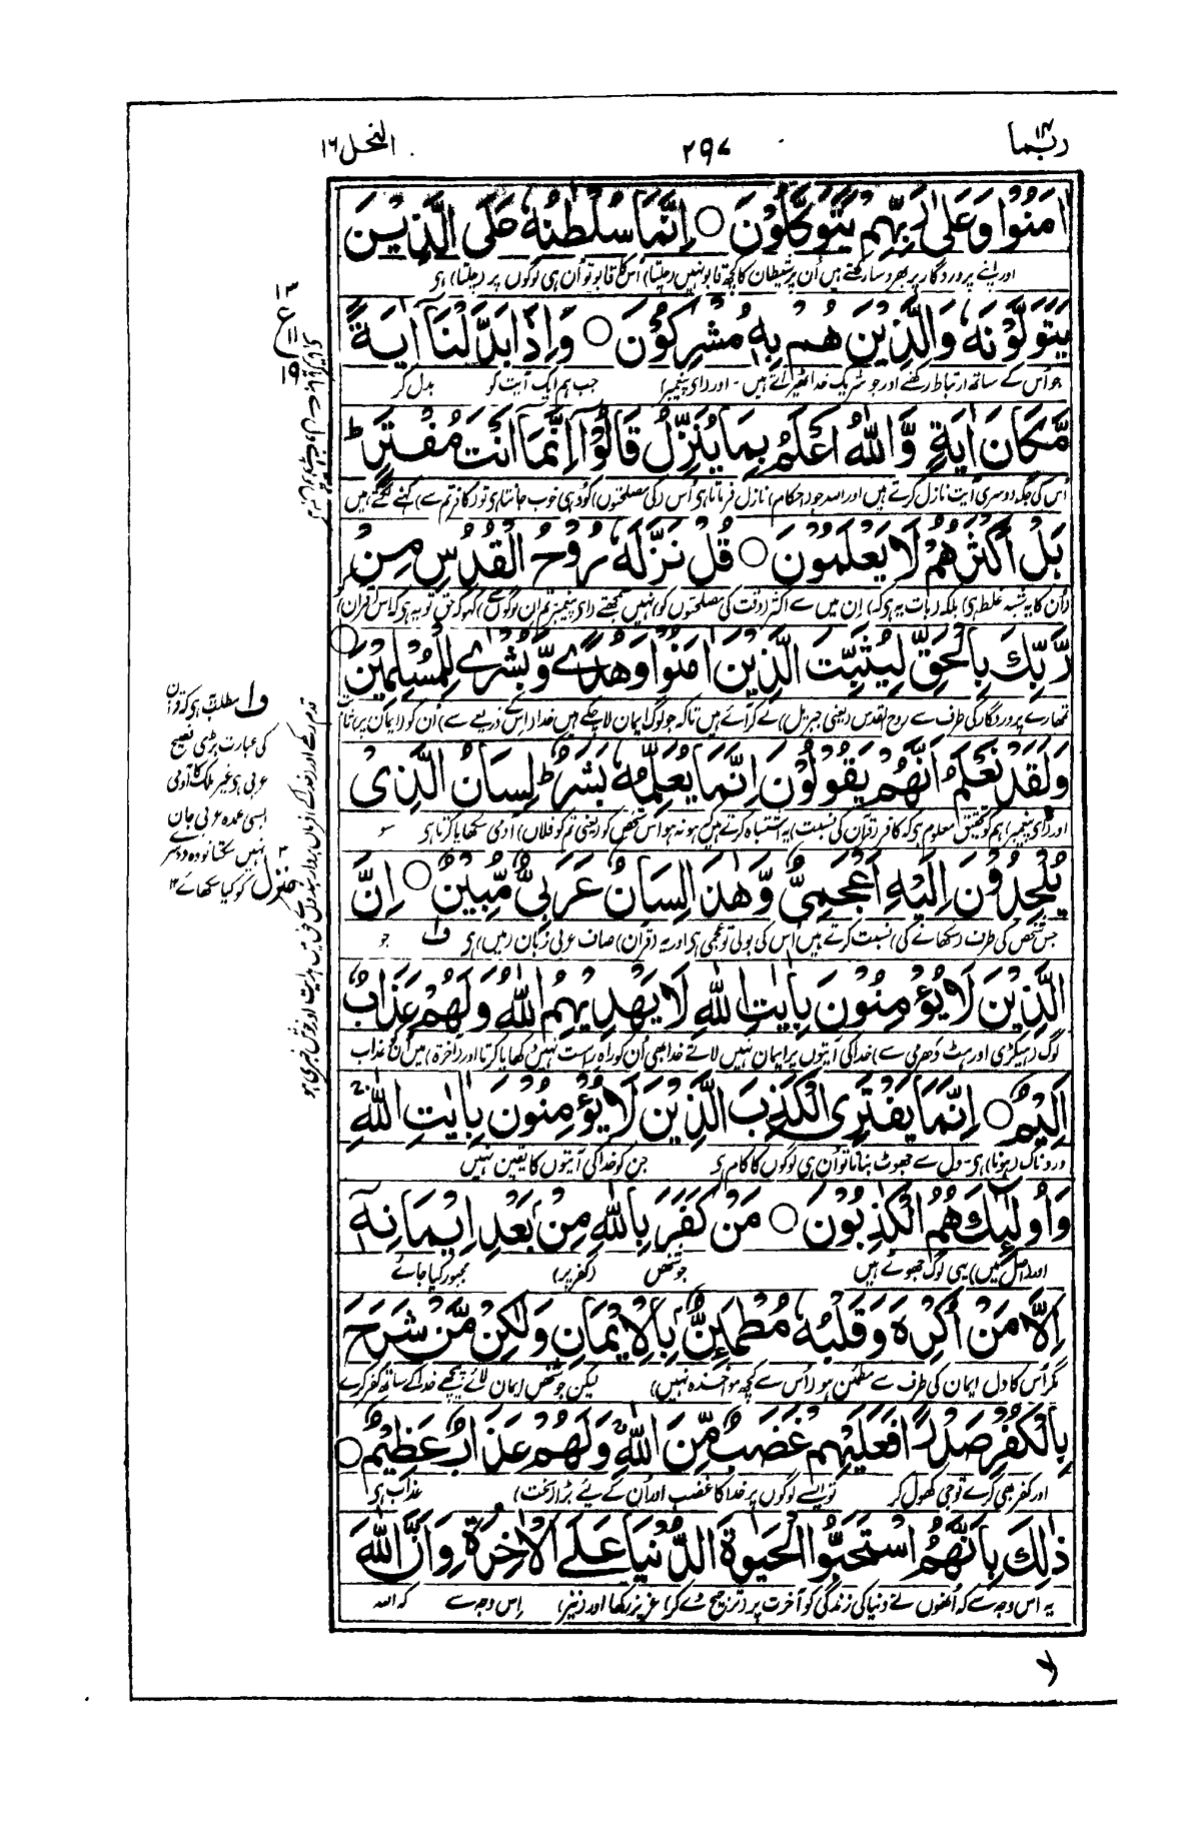 ربما ۱۴
۲۹۷
النحل ۱۶
اٰمَنُوْا وَعَلٰى رَبِّهِمْ يَتَوَكَّلُوْنَ ○ اِنَّمَا سُلْطٰنُهٗ عَلَى الَّذِيْنَ
اور اپنے پروردگار پر بھروسا رکھتے ہیں اُن پر شیطان کا کچھ قابو نہیں (چلتا) اُس کا قابو تو اُن ہی لوگوں پر (چلتا) ہی
يَتَوَلَّوْنَهٗ وَالَّذِيْنَ هُمْ بِهٖ مُشْرِكُوْنَ ○ وَاِذَا بَدَّلْنَآ اٰيَةً
جو اُس کے ساتھ ارتباط رکھتے اور جو شریک خدا ٹھیراتے ہیں - اور (ای پیغمبر) جب ہم ایک آیت کو بدل کر
مَّكَانَ اٰيَةٍ وَّاللّٰهُ اَعْلَمُ بِمَا يُنَزِّلُ قَالُوْٓا اِنَّمَآ اَنْتَ مُفْتَرٍ ط
اُس کی جگہ دوسری آیت نازل کرتے ہیں اور اللہ جو (احکام) نازل فرماتا ہی اُس (کی مصلحتوں) کو وہی خوب جانتا ہی تو (کافر تم سے) کہنے لگتے ہیں
بَلْ اَكْثَرُهُمْ لَا يَعْلَمُوْنَ ○ قُلْ نَزَّلَهٗ رُوْحُ الْقُدُسِ مِنْ
(اُن کا یہ شبہ غلط ہی) بلکہ (بات یہ ہی کہ) اِن میں سے اکثر (وقت کی مصلحتوں کو) نہیں سمجھتے (ای پیغمبر تم اِن لوگوں سے) کہو کہ حق تو یہ ہی کہ اس (قرآن)
رَّبِّكَ بِالْحَقِّ لِيُثَبِّتَ الَّذِيْنَ اٰمَنُوْا وَهُدًى وَّبُشْرٰى لِلْمُسْلِمِيْنَ ○
تمھارے پروردگار کی طرف سے روح القدس (یعنی جبریل) لے کر آئے ہیں تاکہ جو لوگ ایمان لا چکے ہیں خدا (اس کے ذریعے سے) اُن کو (ایمان پر) ثابت
وَلَقَدْ نَعْلَمُ اَنَّهُمْ يَقُوْلُوْنَ اِنَّمَا يُعَلِّمُهٗ بَشَرٌ ط لِسَانُ الَّذِىْ
اور (ای پیغمبر) ہم کو تحقیق معلوم ہی کہ کافر (قرآن کی نسبت) یہ اشتباہ کرتے ہیں کہ ہو نہ ہو اس شخص کو (یعنی تم کو فلاں) آدمی سکھایا کرتا ہی سو
يُلْحِدُوْنَ اِلَيْهِ اَعْجَمِىٌّ وَّهٰذَا لِسَانٌ عَرَبِىٌّ مُّبِيْنٌ ○ اِنَّ
جس شخص کی طرف (سکھانے کی) نسبت کرتے ہیں اُس کی بولی تو عجمی ہی اور یہ (قرآن) صاف عربی زبان (میں) ہی ف۱ جو
الَّذِيْنَ لَا يُؤْمِنُوْنَ بِاٰيٰتِ اللّٰهِ لَا يَهْدِيْهِمُ اللّٰهُ وَلَهُمْ عَذَابٌ
لوگ (ہیکڑی اور ہٹ دھرمی سے) خدا کی آیتوں پر ایمان نہیں لاتے خدا بھی اُن کو راہ راست نہیں دکھایا کرتا اور (آخرۃ) میں اُن کو عذاب
اَلِيْمٌ ○ اِنَّمَا يَفْتَرِى الْكَذِبَ الَّذِيْنَ لَا يُؤْمِنُوْنَ بِاٰيٰتِ اللّٰهِ
دردناک (ہونا) ہی - دل سے جھوٹ بنانا تو اُن ہی لوگوں کا کام ہی جن کو خدا کی آیتوں کا یقین نہیں
وَاُولٰٓئِكَ هُمُ الْكٰذِبُوْنَ ○ مَنْ كَفَرَ بِاللّٰهِ مِنْۢ بَعْدِ اِيْمَانِهٖٓ
اور (اصل میں) یہی لوگ جھوٹے ہیں جو شخص (کفر پر) مجبور کیا جائے
اِلَّا مَنْ اُكْرِهَ وَقَلْبُهٗ مُطْمَئِنٌّۢ بِالْاِيْمَانِ وَلٰكِنْ مَّنْ شَرَحَ
مگر اُس کا دل ایمان کی طرف سے مطمئن ہو (اُس سے کچھ مواخذہ نہیں) لیکن جو شخص ایمان لائے پیچھے خدا کے ساتھ کفر کرے
بِالْكُفْرِ صَدْرًا فَعَلَيْهِمْ غَضَبٌ مِّنَ اللّٰهِ وَلَهُمْ عَذَابٌ عَظِيْمٌ ○
اور کفر بھی کرے تو جی کھول کر تو ایسے لوگوں پر خدا کا غضب اور اُن کے لیے بڑا (سخت) عذاب ہی
ذٰلِكَ بِاَنَّهُمُ اسْتَحَبُّوا الْحَيٰوةَ الدُّنْيَا عَلَى الْاٰخِرَةِ وَاَنَّ اللّٰهَ
یہ اس وجہ سے کہ اُنھوں نے دنیا کی زندگی کو آخرت پر (ترجیح دے کر) عزیز رکھا اور (نیز) اِس وجہ سے کہ اللہ
لا
۱۳
ع
۱۹
ف۱ مطلب یہ ہی کہ قرآن
کی عبارت بڑی فصیح
عربی ہی غیر ملک کا آدمی
ایسی عمدہ عربی جان
نہیں سکتا تو وہ دوسرے
کو کیا سکھائے ۱۲
منزل ۳
قدم رکھے اور خدا کے فرماں بردار بندوں کے حق میں ہدایت اور خوش خبری ہو